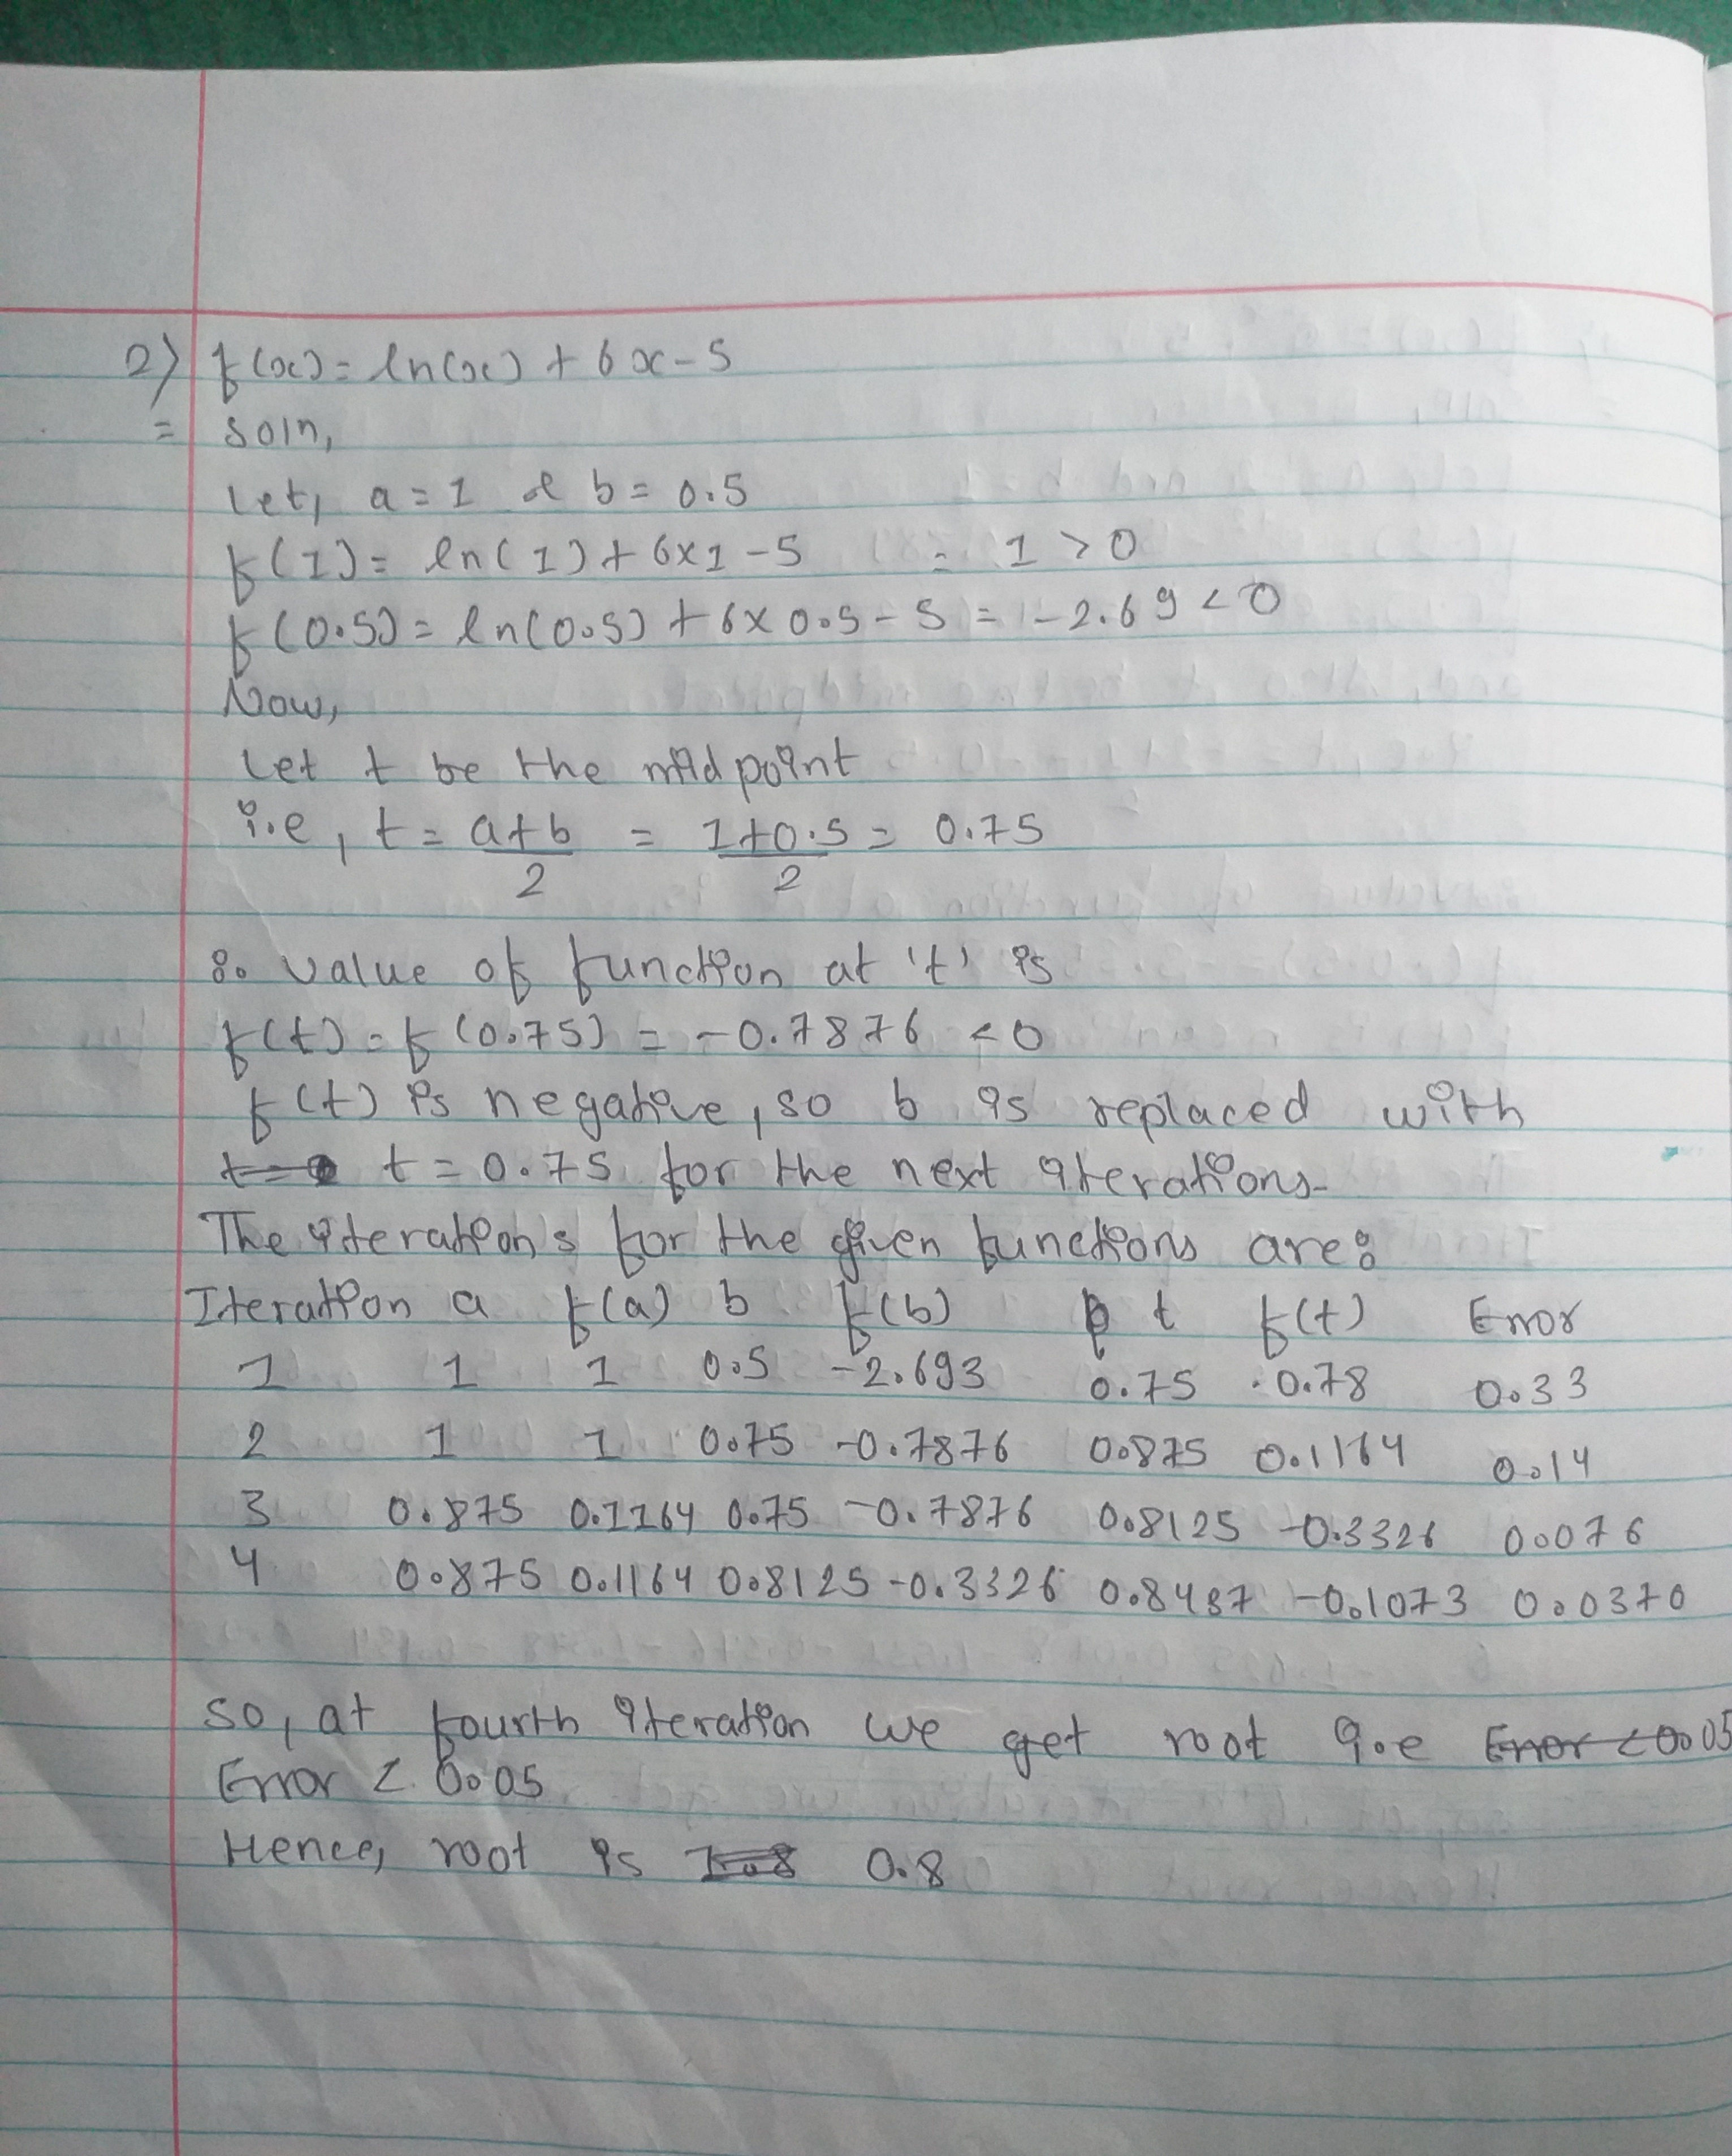 2) f(x) = ln(x) + 6x - 5
= soln,
Let, a = 1 & b = 0.5
f(1) = ln(1) + 6x1 - 5 = 1 > 0
f(0.5) = ln(0.5) + 6x0.5 - 5 = -2.69 < 0
Now,
Let t be the midpoint
i.e, t = a+b/2 = 1+0.5/2 = 0.75
∴ value of function at 't' is
f(t) = f(0.75) = -0.7876 < 0
f(t) is negative, so b is replaced with
t = 0.75 for the next iterations.
The iterations for the given functions are:
Iteration a f(a) b f(b) t f(t) Error
1 1 1 0.5 -2.693 0.75 -0.78 0.33
2 1 1 0.75 -0.7876 0.875 0.1164 0.14
3 0.875 0.1164 0.75 -0.7876 0.8125 -0.3326 0.076
4 0.875 0.1164 0.8125 -0.3326 0.8437 -0.1073 0.0370
So, at fourth iteration we get root i.e Error < 0.05
Error < 0.05
Hence, root is 0.8